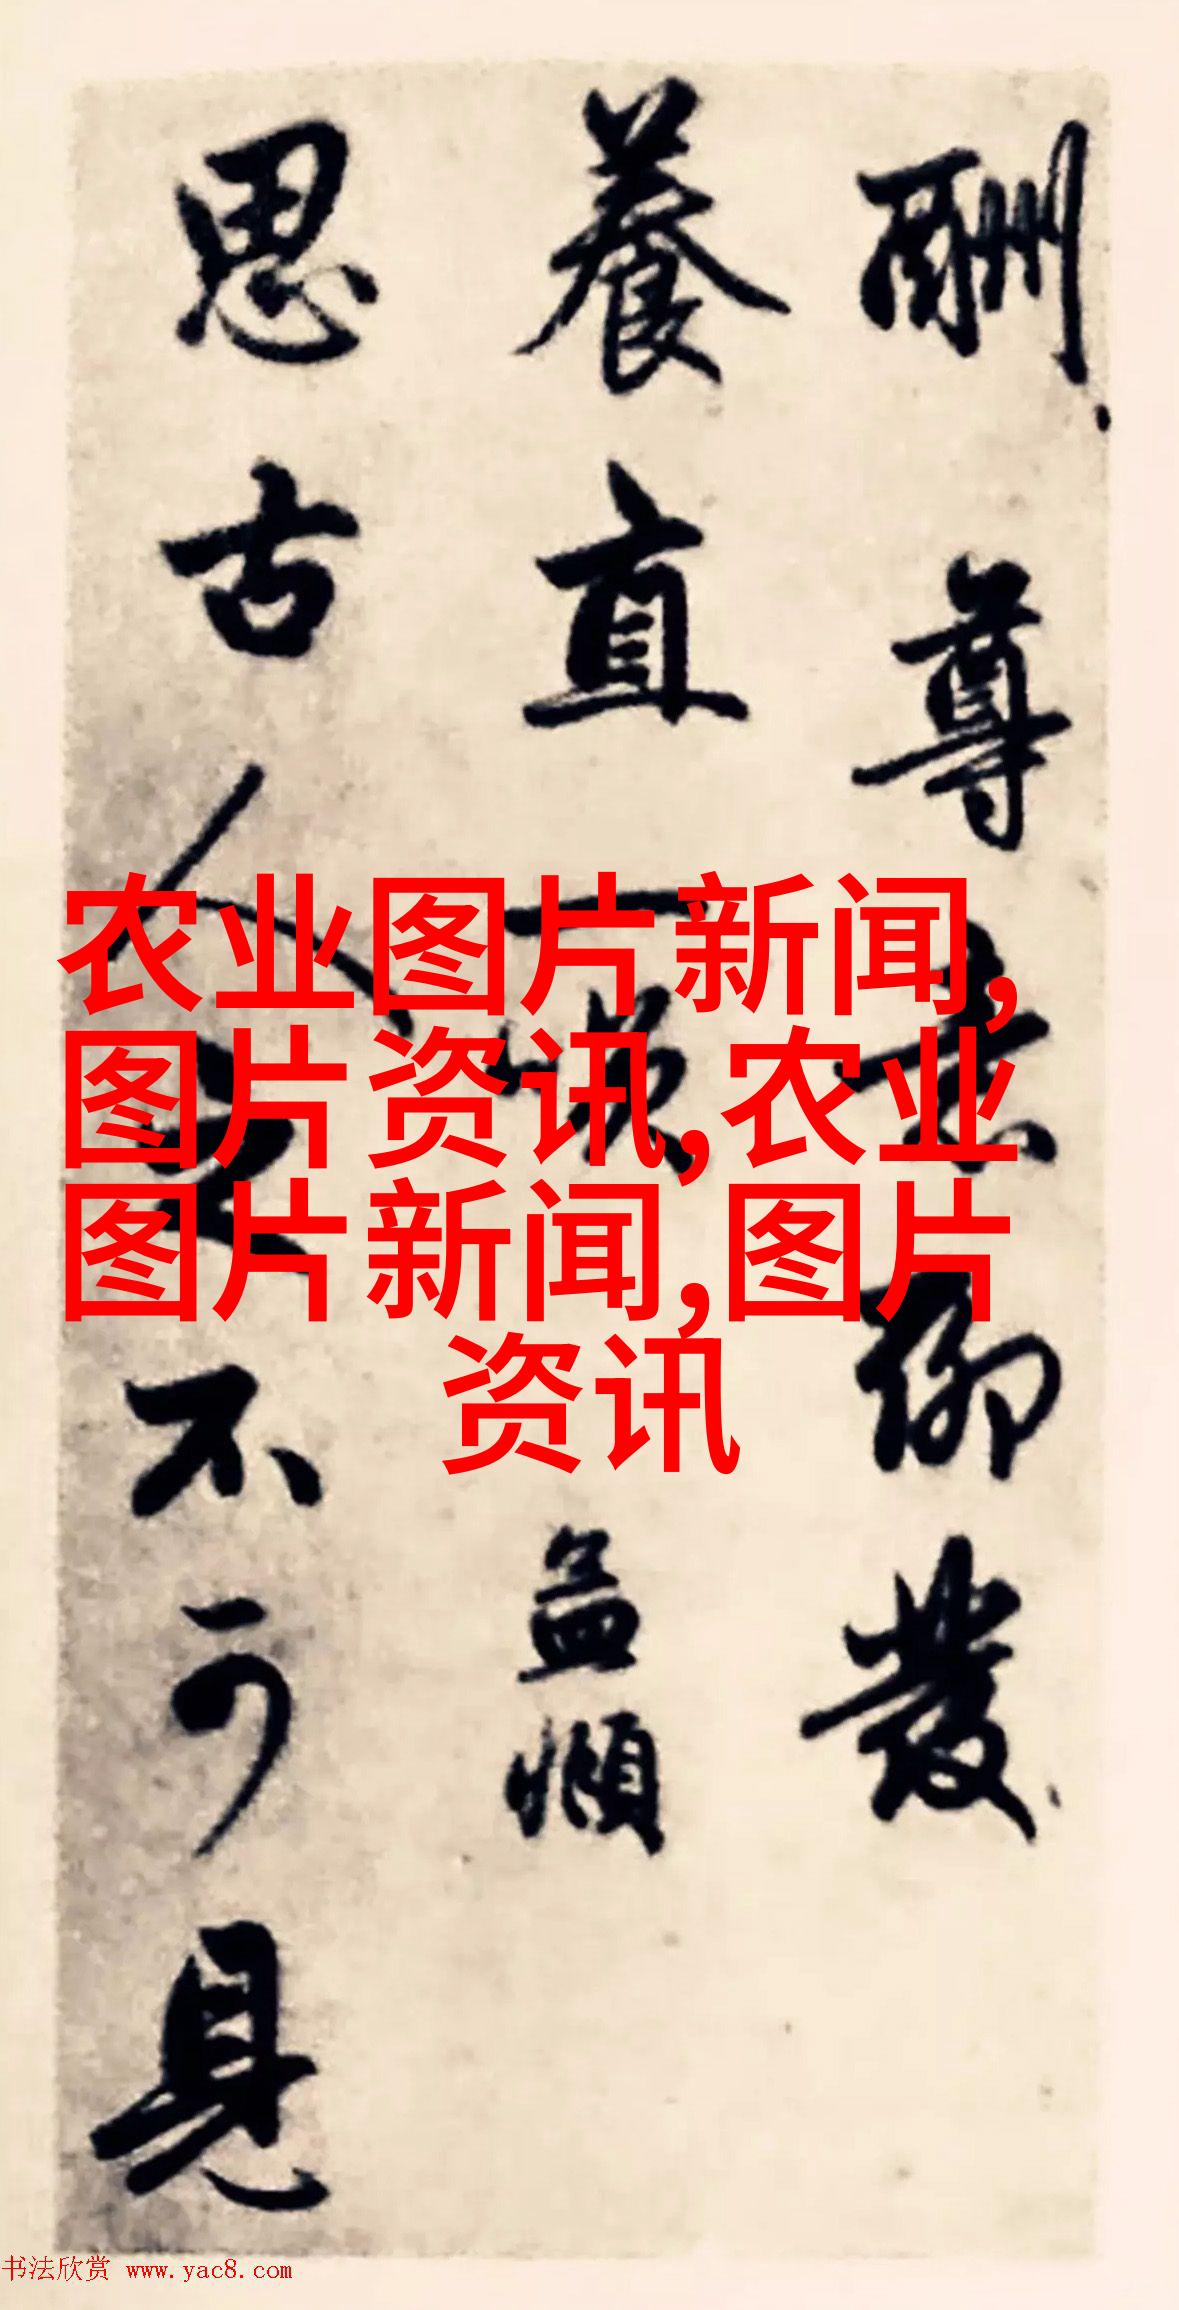 酬尊聊發
養直一笑 孟頫
思古人之不可見
农业图片新闻,
图片资讯,农业
图片新闻,图片
资讯
书法欣赏 www.yac8.com